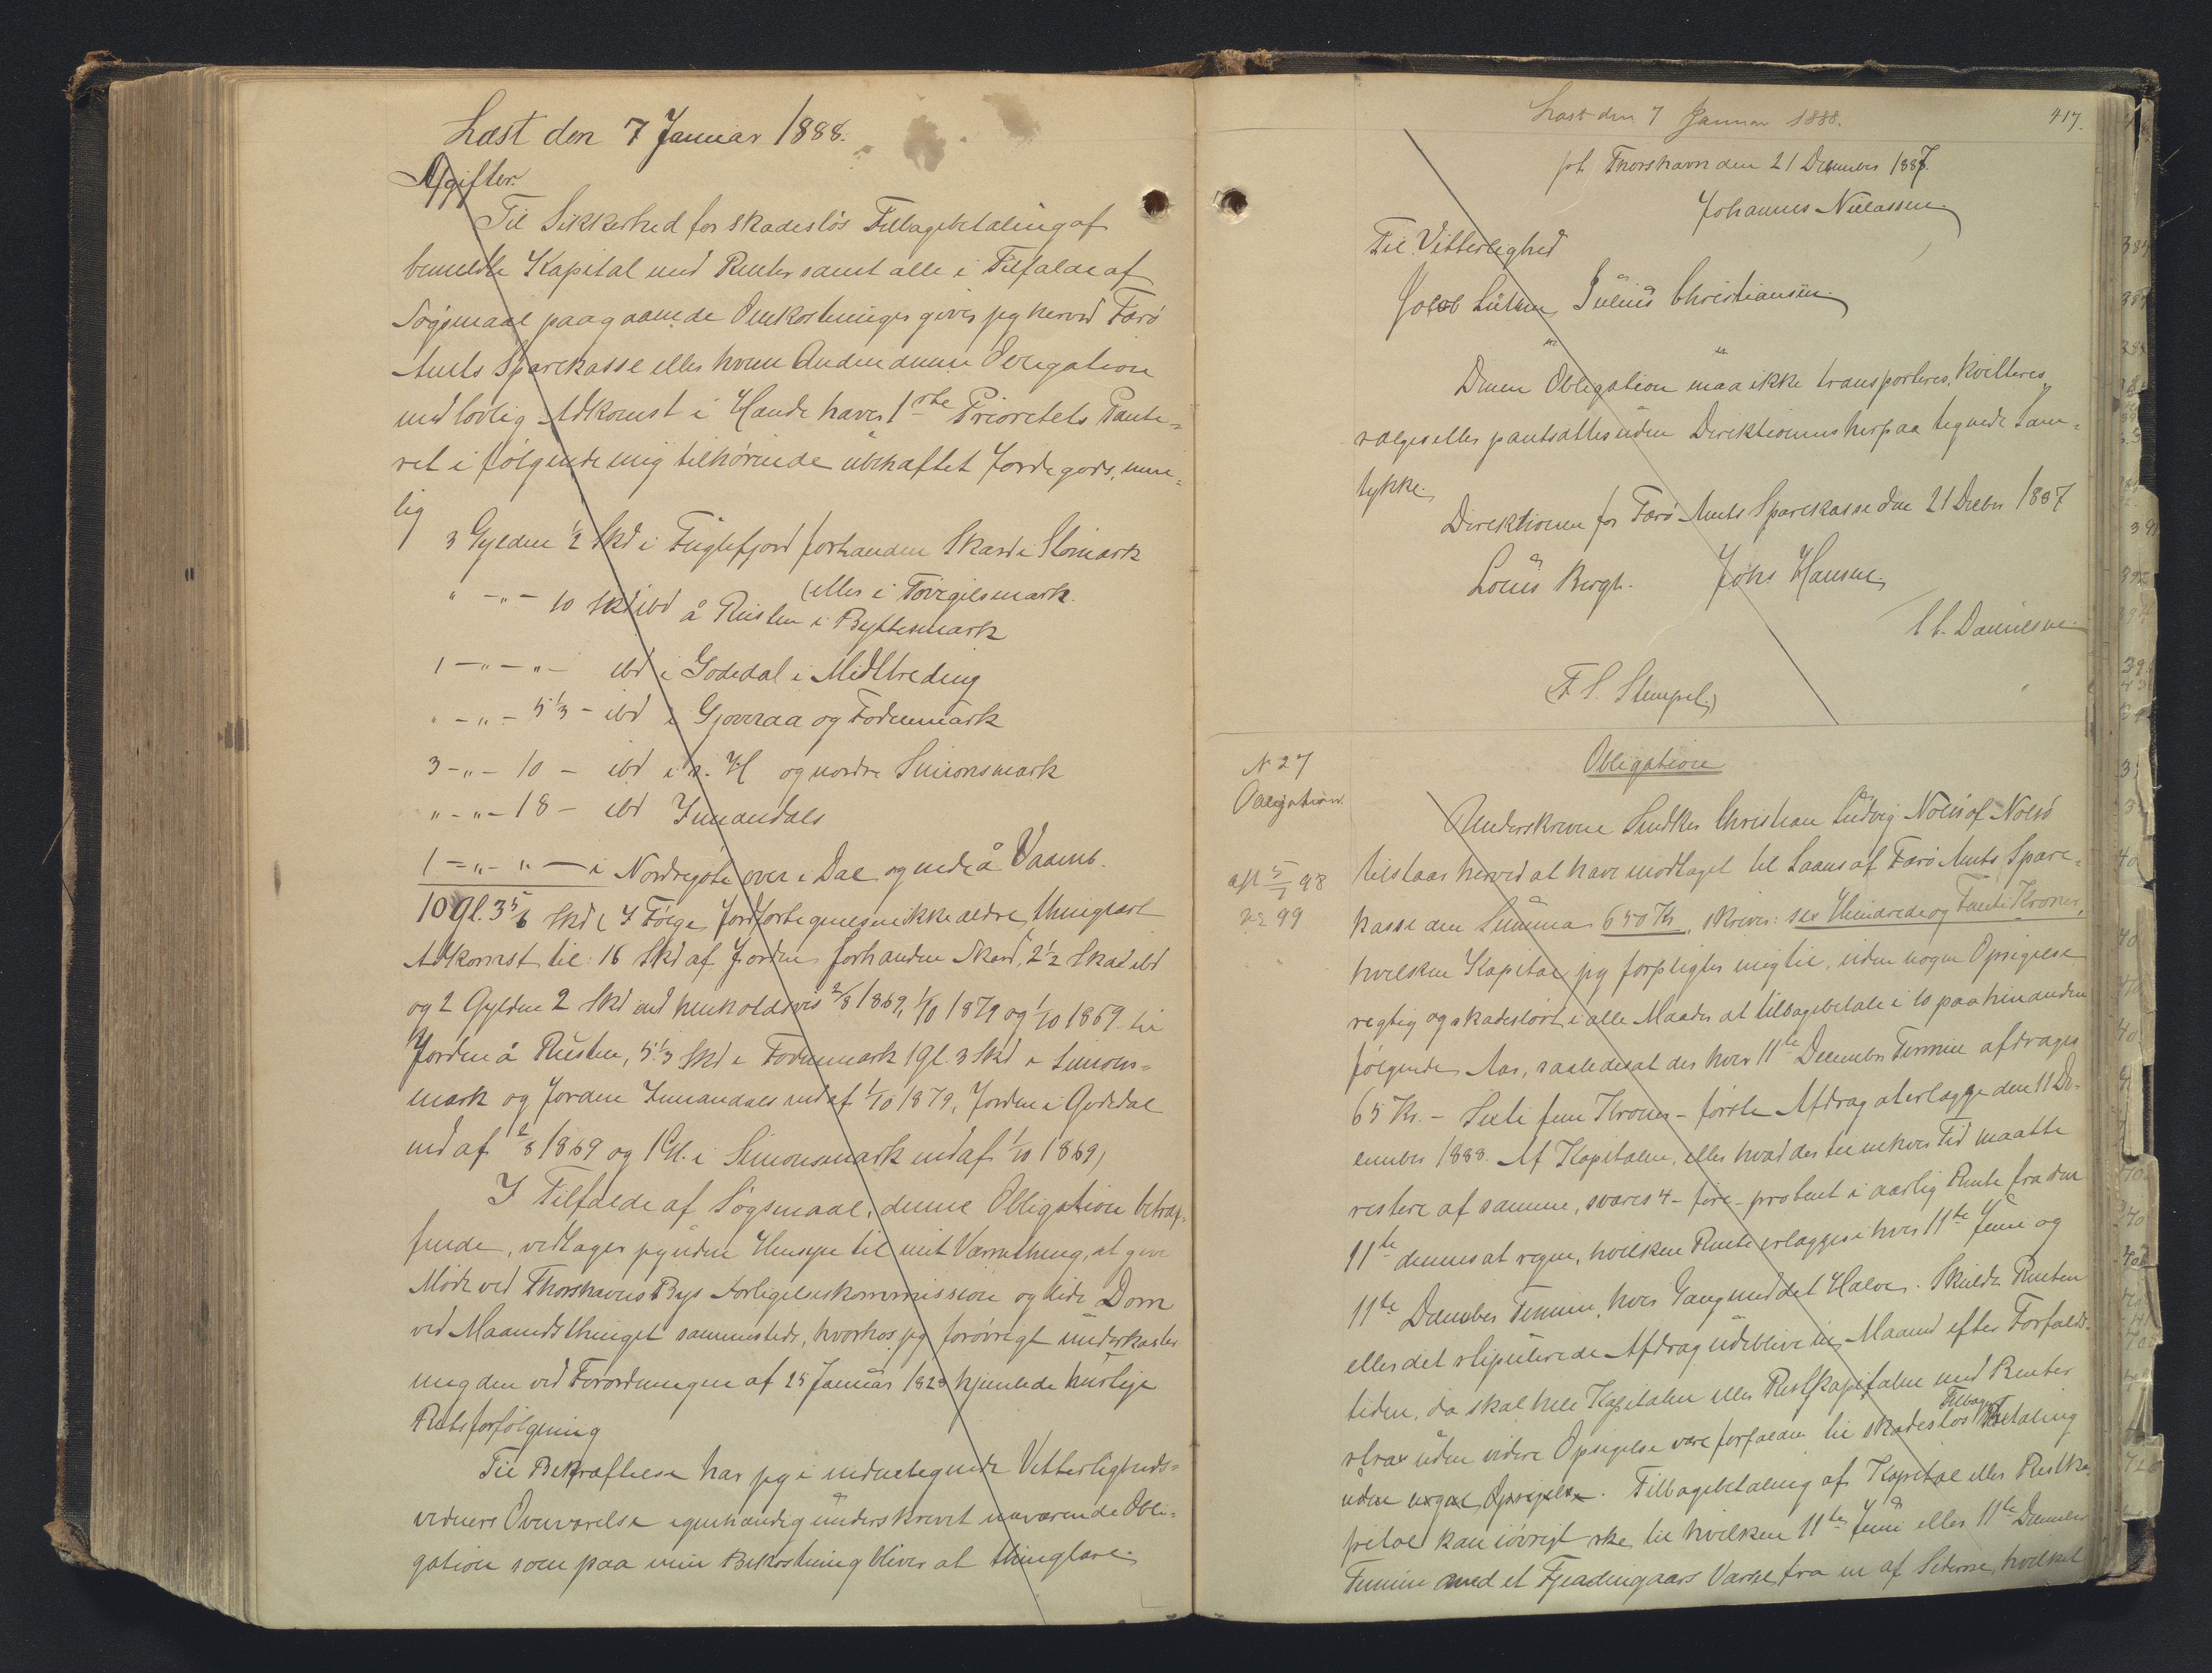 Læst den 7 Januar 1888.
Afgifter.
Til Sikkerhed for skadesløs Tilbagebetaling af
bemeldte Kapital med Renter samt alle i Tilfælde af
Søgsmaal paagaaende Omkostninger giver jeg herved Færø
Amts Sparekasse eller hvem Anden denne Obligation
med lovlig Adkomst i Hænde haver 1ste Prioritets Pante-
ret i følgende mig tilhørende ubehæftet Jordegods, nem-
lig
3 Gylden ½ Skd i Fuglefjord forhanden Skard i Stomark
(eller i Torgilsmark.
" -"- 10 Skd ibd å Rusten i Byttesmark
1 -"-"- ibd i Godedal i Midtbreding
" -"- 5⅓ - ibd i Gjovraa og Fodunmark
3 -"- 10 - ibd i n. H og nordre Simonsmark
" -"- 18 - ibd Innandals
1 -"-"- i Nordregøte over i Dal og nedå Vaamb.
10 Gl. 3⅚ Skd (I Følge Jordfortegnelsen ikke ældre thinglæst
Adkomst til: 16 Skd af Jorden forhanden Skard, 2½ Skd ibd
og 2 Gylden 2 Skd end henholdsvis 2/8 1869, 1/10 1879 og 1/10 1869 til
Jorden å Rusten, 5⅓ Skd i Fodunmark 1 Gl. 3 Skd i Simons-
mark og Jorden Innandals end af 1/10 1879, Jorden i Godedal
end af 2/8 1869 og 1 Gl. i Simonsmark end af 1/10 1869)
I Tilfælde af Søgsmaal, denne Obligation betræf-
fende, vedtager jeg uden Hensyn til mit Værnething, at give
Møde ved Thorshavns Bys Forligelseskommission og lide Dom
ved Maanedsthinget sammesteds, hvorhos jeg forøvrigt underkaster
mig den ved Forordningen af 25 Januar 1828 hjemlede hurtige
Retsforfølgning
Til Bekræftelse har jeg i undertegnede Vitterligheds-
vidners Overværelse egenhændig underskrevet nærværende Obli-
gation som paa min Bekostning bliver at thinglæse.
Læst den 7 Januar 1888.
417.
pt. Thorshavn den 21 December 1887.
Johannes Nielassen
Til Vitterlighed
Jacob Lützen Julius Christiansen
Denne Obligation maa ikke transporteres, kvitteres
sælges eller pantsættes uden Direktionens herpaa tegnede Sam-
tykke.
Direktionen for Færø Amts Sparekasse den 21 Decbr 1887
Louis Bergh. Johs Hansen
C. C. Danielsen
(F. S. Stempel)
N 27
Obligation.
Obligation
Underskrevne Snedker Christian Ludvig Nolsø af Nolsø
tilstaar herved at have modtaget til Laans af Færø Amts Spare-
afl 5/1 98
kasse den Summa 650 Kr, skriver: sex Hundrede og Femti Kroner,
hvilken Kapital jeg forpligter mig til, uden nogen Opsigelse
rigtig og skadesløst i alle Maader at tilbagebetale i 10 paa hinanden
følgende Aar, saaledes at der hver 11te December Termin afdrages
65 Kr. - Sexti fem Kroner - første Afdrag at erlægge den 11 De-
cember 1888. Af Kapitalen, eller hvad der til enhver Tid maatte
restere af samme, svares 4 - fire - procent i aarlig Rente fra den
11te dennes at regne, hvilken Rente erlægges i hver 11te Juni og
11te December Termin, hver Gang med det Halve. Skulde Renten
eller det stipulerede Afdrag udeblive en Maaned efter Forfalds-
tiden, da skal hele Kapitalen eller Restkapitalen med Renter
strax uden videre Opsigelse være forfalden til skadesløs Tilbagebetaling
uden nogen Opsigelse. Tilbagebetaling af Kapital eller Restka-
pital kan iøvrigt ske til hvilken 11te Juni eller 11te December
Termin med et Fjerdingaars Varsel fra en af Siderne, hvilket